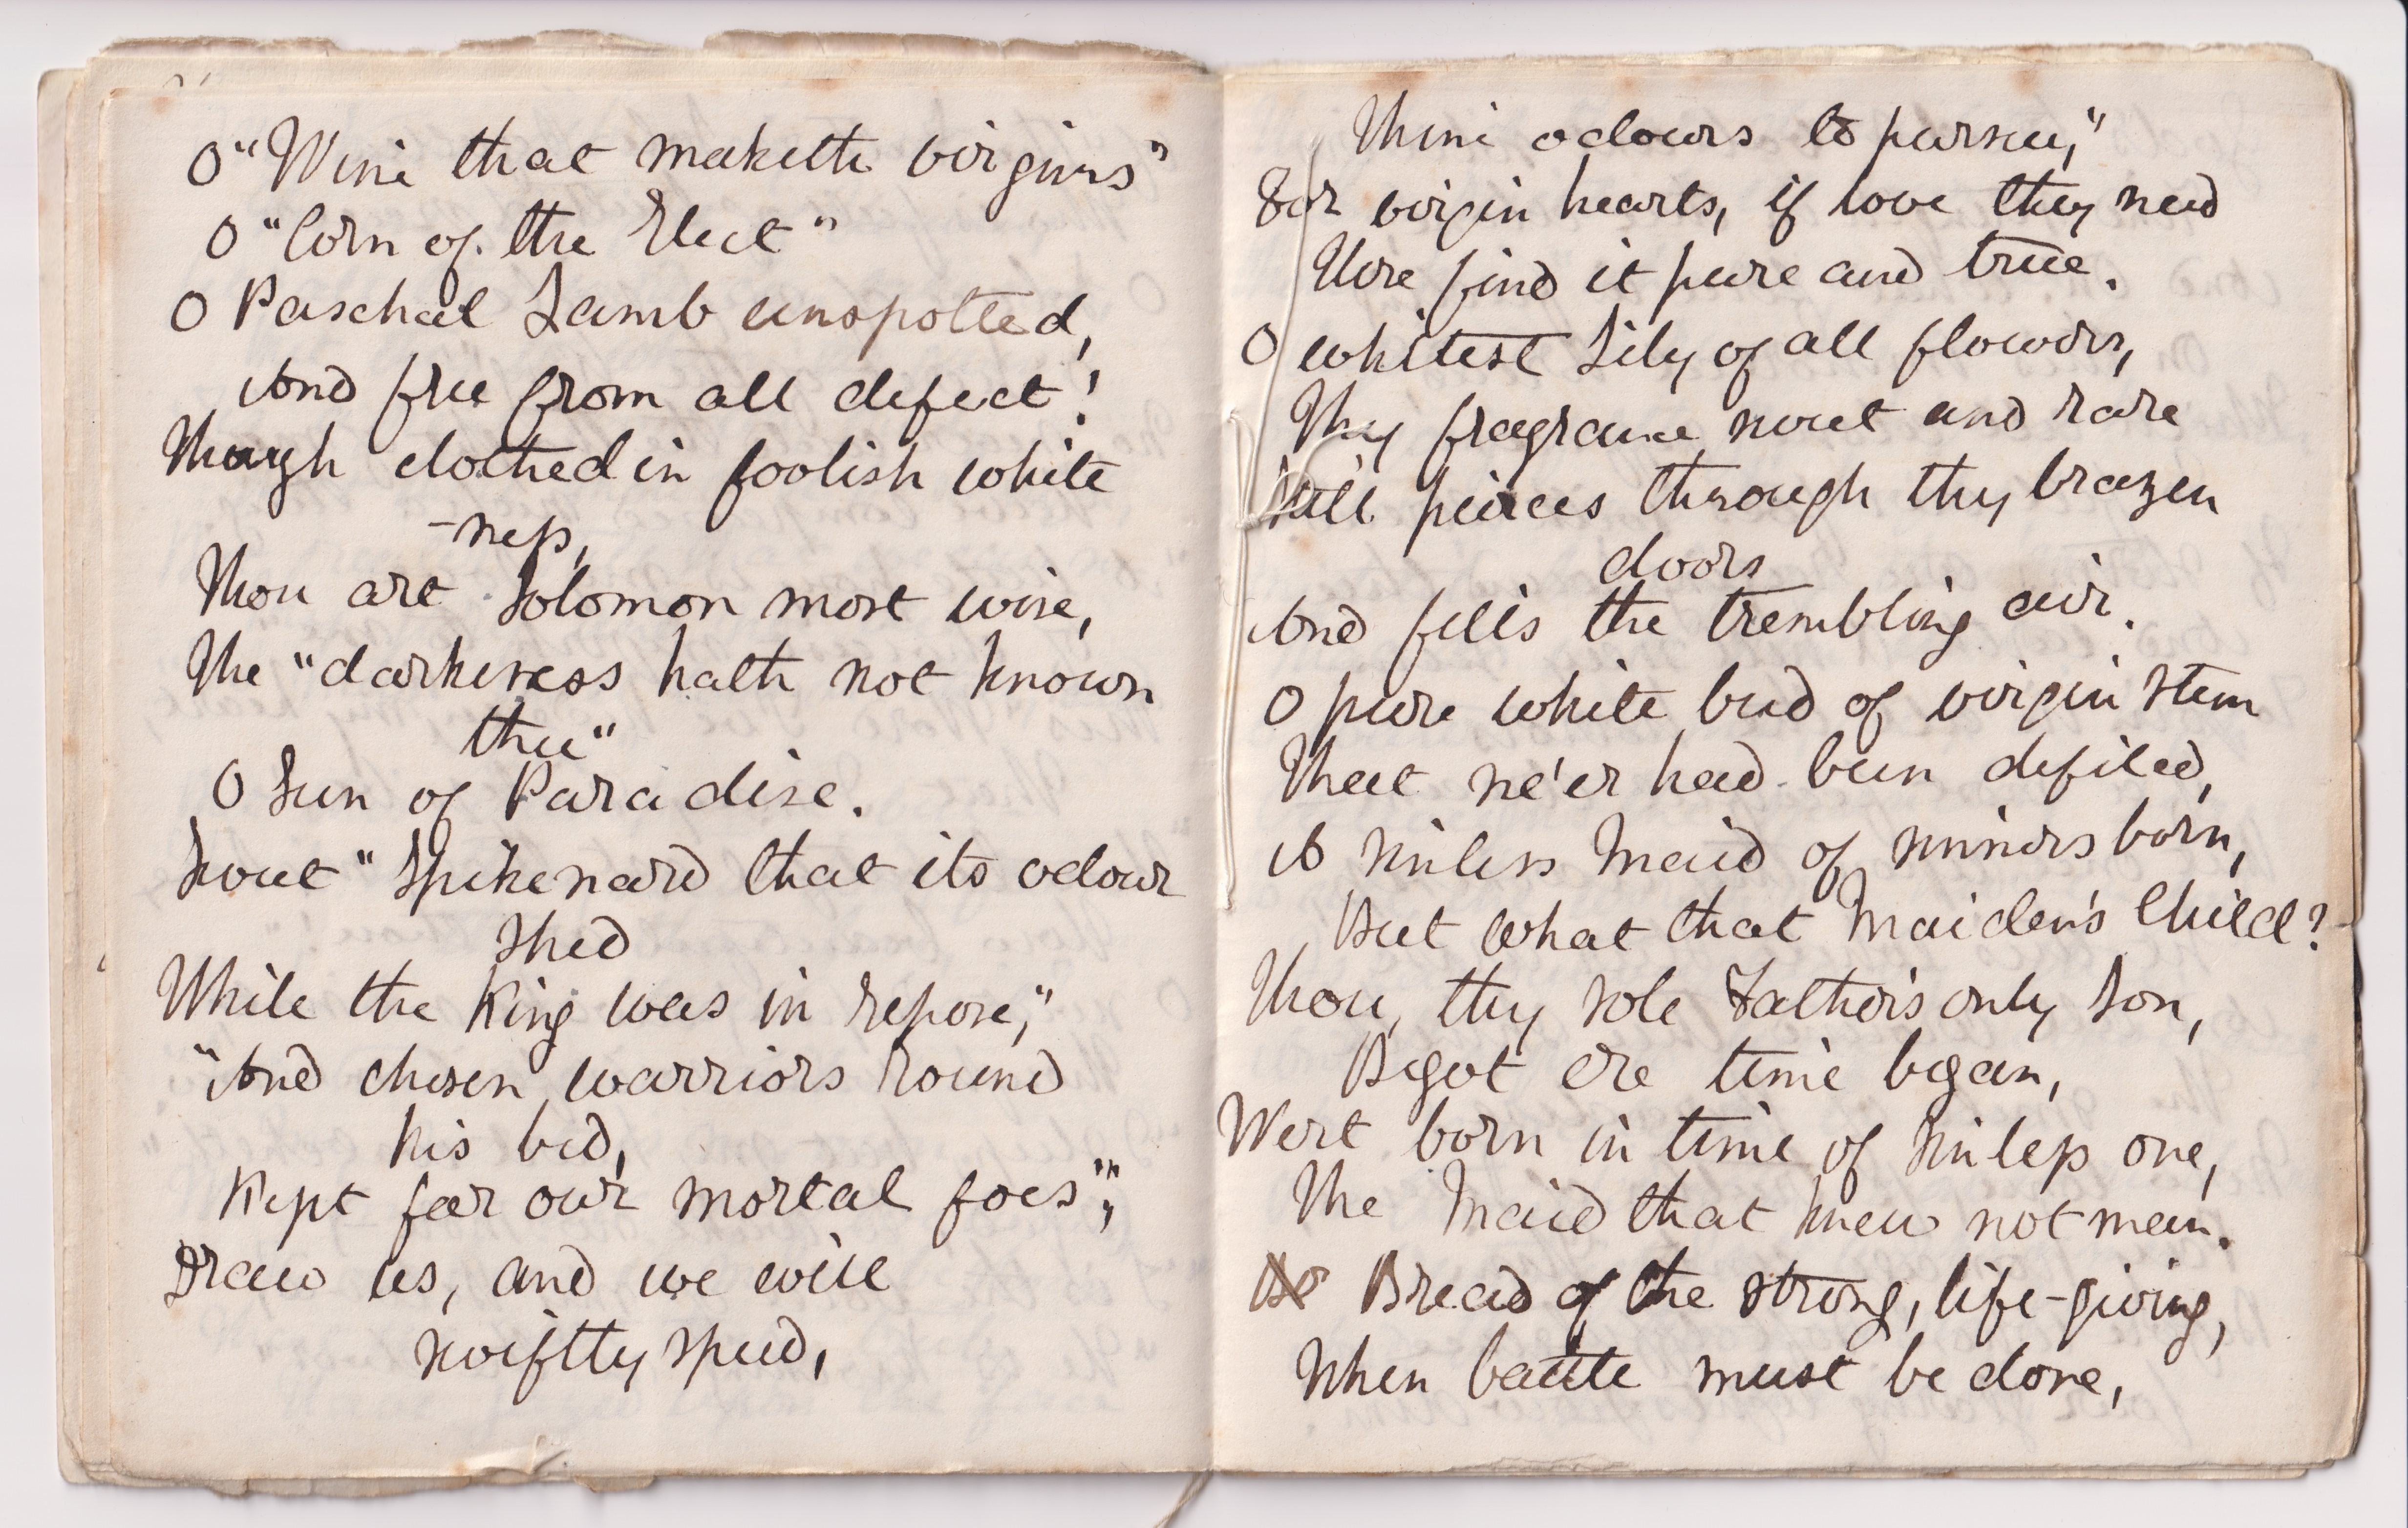 O "Wine that maketh virgins"
O "Corn of the Elect"
O Paschal Lamb unspotted,
And free from all defect!
Though clothed in foolish white
-ness,
Thou art Solomon most wise,
The "darkness hath not known
thee"
O Sun of Paradise.
Sweet "Spikenard that its odour
shed
While the King was in repose,"
"And chosen warriors round
his bed,
Kept far our mortal foes";
Draw us, and we will
swiftly speed,
Thine odours to pursue,"
For virgin hearts, if love they need
Here find it pure and true.
O whitest Lily of all flowers,
Thy fragrance sweet and rare
Still pierces through thy brazen
doors
And fills the trembling air.
O pure white bud of virgin stem
That ne'er had been defiled,
A sinless Maid of sinners born,
But what that Maiden's Child?
Thou, thy sole Father's only Son,
Begot ere time began,
Wert born in time of sinless one,
The Maid that knew not man.
Bread of the strong, life-giving,
When battle must be done,